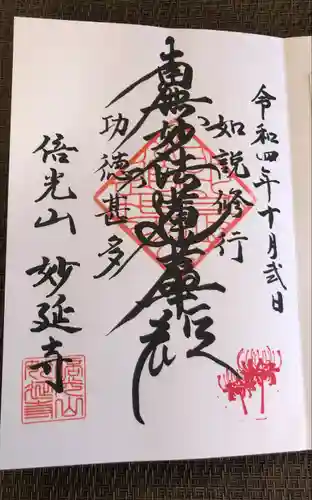 令和四年十月弐日
如説修行
南無妙法蓮華経
功徳甚多
倍光山 妙延寺